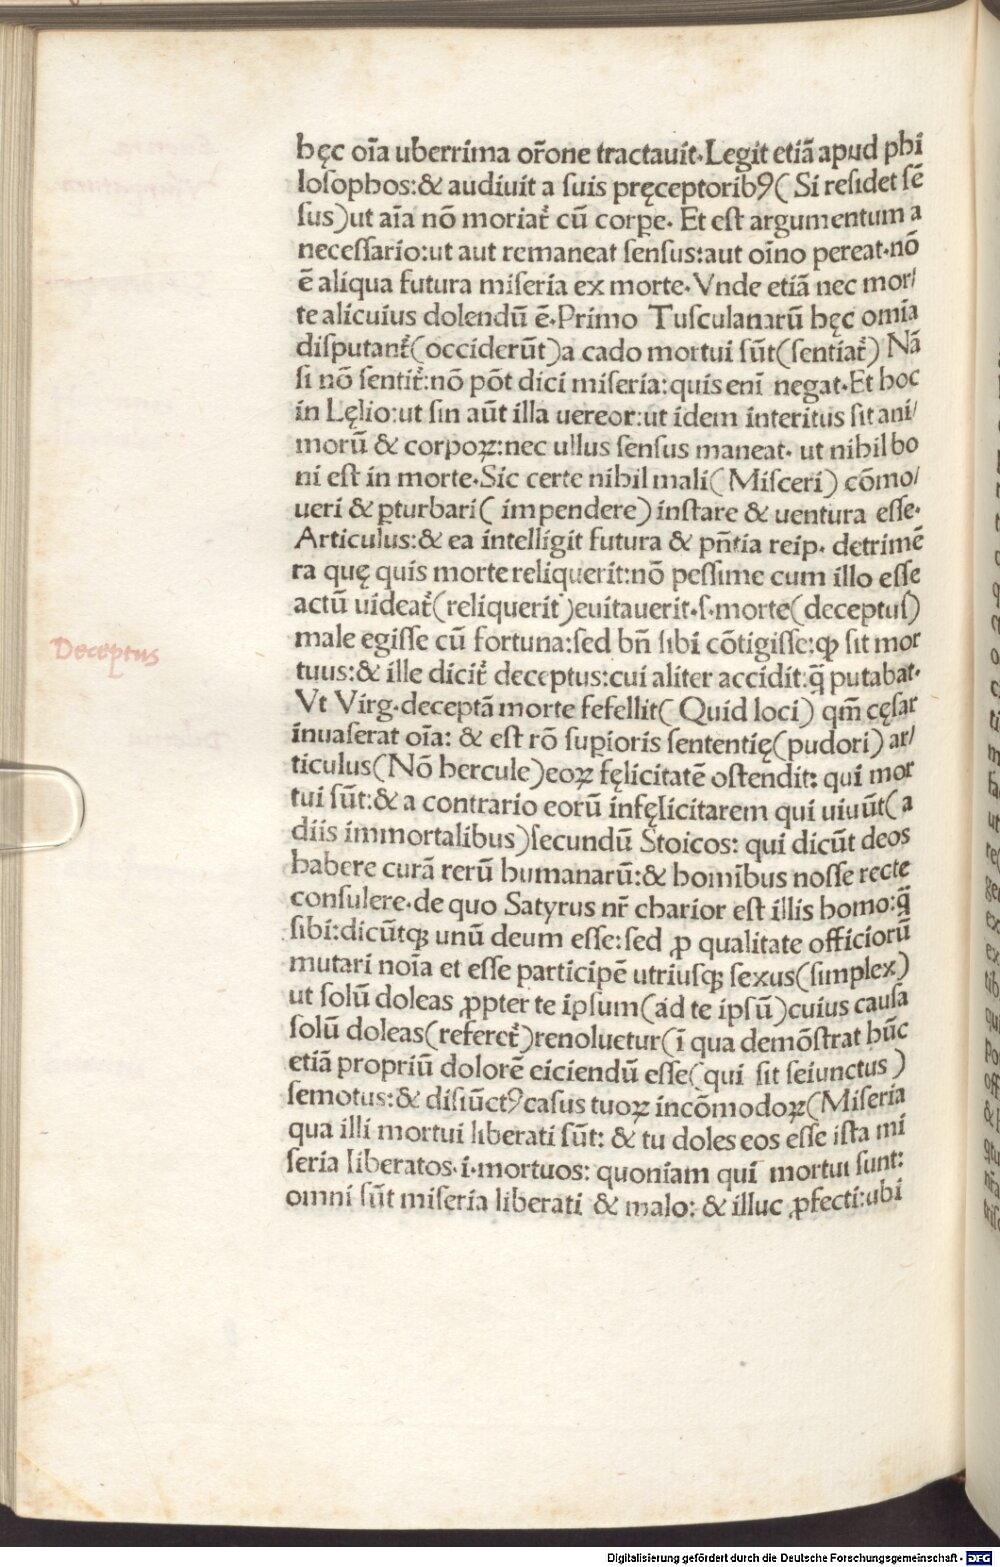 hęc oīa uberrima or̄one tractauit·Legit etiā apud phi
losophos:& audiuit a suis pręceptoribꝯ( Si residet sē
sus)ut aīa nō moriat̄ cū corpe· Et est argumentum a
necessario:ut aut remaneat sensus:aut oīno pereat·nō
ē aliqua futura miseria ex morte·Vnde etiā nec mor/
te alicuius dolendū ē·Primo Tusculanarū hęc omia
disputant̄(occiderūt)a cado mortui sūt(sentiat̄) Nā
si nō sentit̄:nō pōt dici miseria:quis enī negat·Et hoc
in Lęlio:ut sin aūt illa uereor:ut idem interitus sit ani/
morū & corpoꝝ:nec ullus sensus maneat· ut nihil bo
ni est in morte·Sic certe nihil mali( Misceri) cōmo/
ueri & ꝑturbari( impendere) instare & uentura esse·
Articulus:& ea intelligit futura & pn̄tia reip· detrimē
ra quę quis morte reliquerit:nō pessime cum illo esse
actū uideat̄(reliquerit)euitauerit·s·morte(deceptus)
male egisse cū fortuna:sed bn̄ sibi cōtigisse:ꝙ sit mor
Deceptus
tuus:& ille dicit̄ deceptus:cui aliter accidit:q̄ putabat·
Vt Virg·deceptā morte fefellit( Quid loci) qm̄ cęsar
inuaserat oīa: & est rō supioris sententię(pudori) ar/
ticulus(Nō hercule)eoꝝ fęlicitatē ostendit: qui mor
tui sūt:& a contrario eorū infęlicitarem qui uiuūt( a
diis immortalibus)secundū Stoicos: qui dicūt deos
habere curā rerū humanarū:& homībus nosse recte
consulere·de quo Satyrus nr̄ charior est illis homo:q̄
sibi:dicūtqꝫ unū deum esse:sed ꝓ qualitate officiorū
mutari noīa et esse participē utriusqꝫ sexus(simplex)
ut solū doleas ꝓpter te ipsum(ad te ipsū)cuius causa
solū doleas(referet̄)renoluetur(ī qua demōstrat hūc
etiā propriū dolorē eiciendū esse(qui sit seiunctus )
semotus:& disiūctꝯcasus tuoꝝ incōmodoꝝ(Miseria
qua illi mortui liberati sūt: & tu doles eos esse ista mi
seria liberatos·i·mortuos: quoniam qui mortui sunt:
omni sūt miseria liberati & malo: & illuc ꝓfecti:ubi
Digitalisierung gefördert durch die Deutsche Forschungsgemeinschaft - DFG